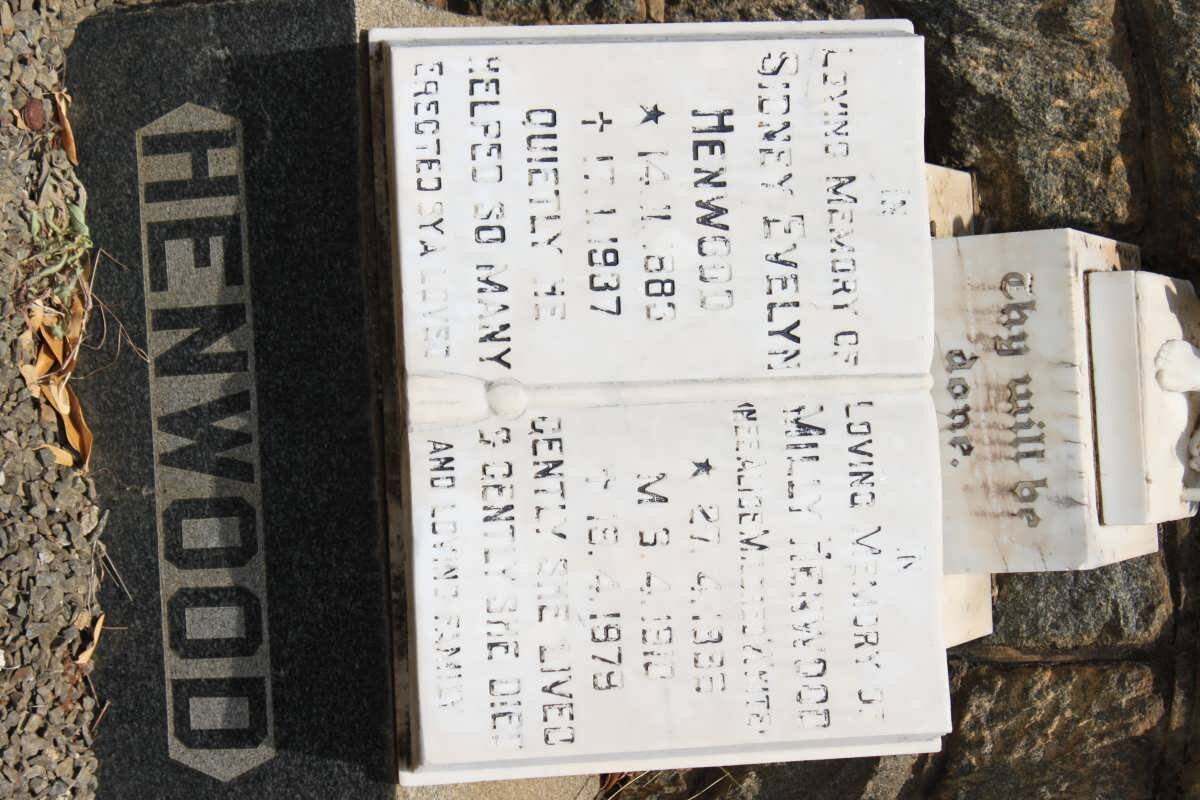 Thy will be
done.
IN
LOVING MEMORY OF
SIDNEY EVELYN
HENWOOD
★ 14.11.1883
✝ 17.1.1937
QUIETLY HE
HELPED SO MANY
ERECTED BY A LOVED
IN
LOVING MEMORY OF
MILLY HENWOOD
★ 27.4.1886
M 6.4.1910
✝ 18.4.1979
GENTLY SHE LIVED
& GENTLY SHE DIED
AND LOVING FAMILY
HENWOOD